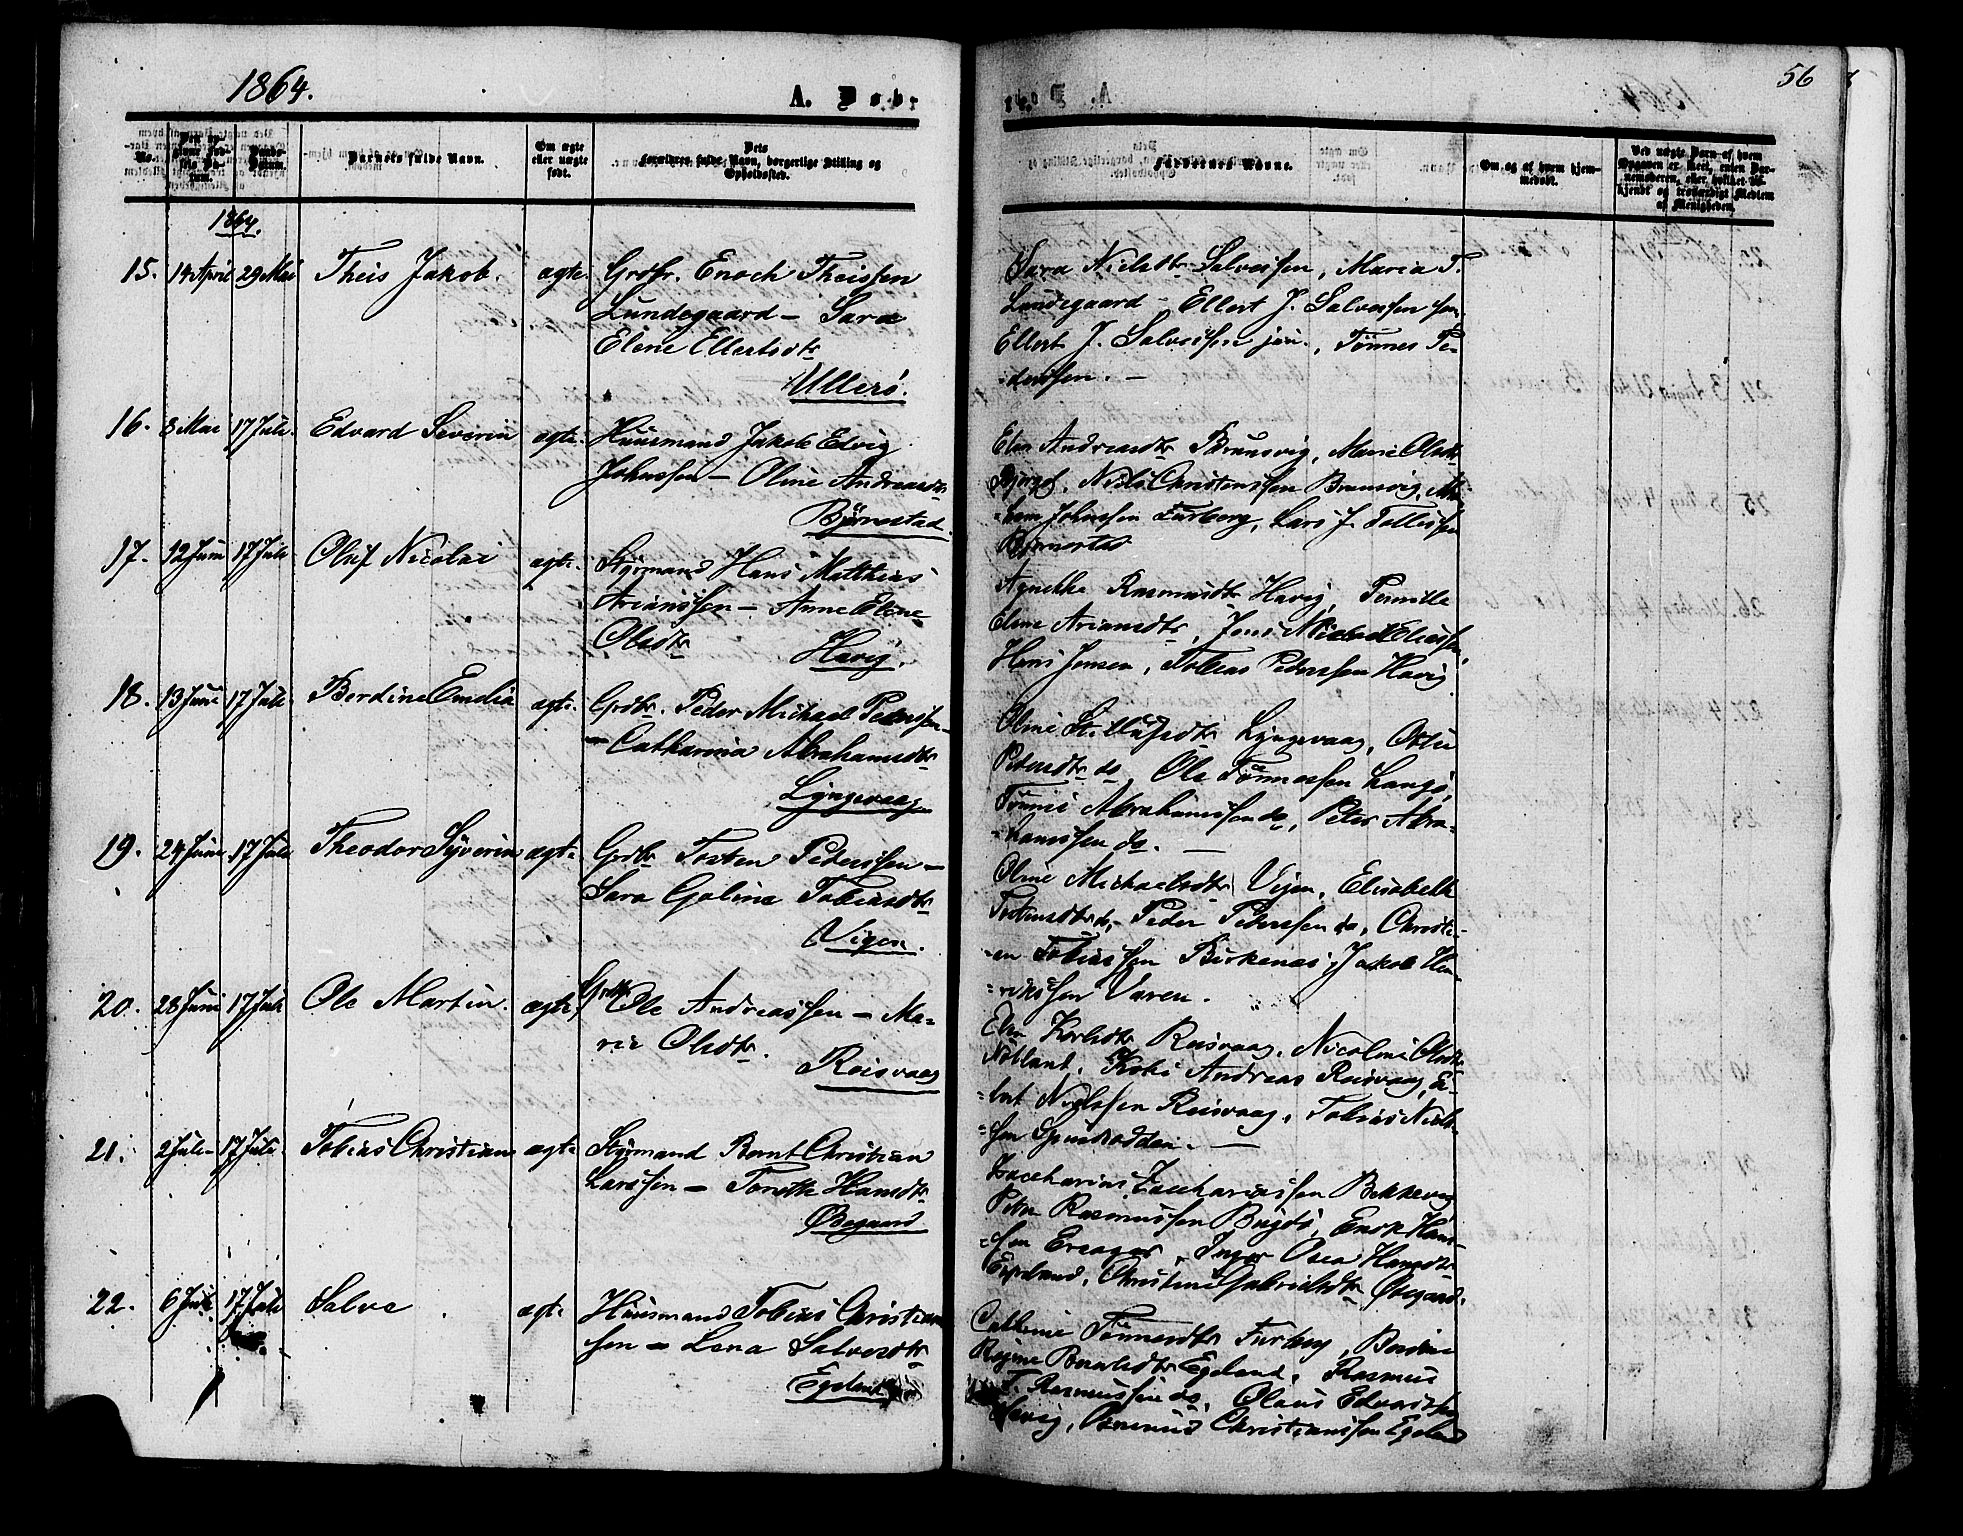 1864.
A. Døb.
No.
Den angivne Fødsels Datum.
Daabs-Datum.
Barnets fulde Navn.
Om ægte eller uægte født.
Dets
Forældres fulde Navn, borgerlige Stilling og
Opholdssted.
1864.
15. 14 April 29 Mai Theis Jakob. ægte. Grdbr. Enoch Theissen
Lundegaard – Sara
Elene Ellertsdtr
Ullerø.
16. 8 Mai 17 Juli. Edvard Severin ægte. Huusmand Jakob Edvig
Johnssen – Oline Andreasdtr
Bjørnestad.
17. 12 Juni 17 Juli Oluf Nicolai ægte. Styrmand Hans Matthias
Arianssen – Anne Elene
Olsdtr Havig.
18. 13 Juni 17 Juli. Berdine Emelia ægte. Grdbr. Peder Michael Pederssen
– Catharina Abrahamsdtr
Lyngevaag
19. 24 Juni 17 Juli Theodor Syverin ægte Grdbr Tosten Pederssen –
Sara Goline Tobiasdtr
Vigen.
20. 28 Juni 17 Juli Ole Martin. ægte Grdbr Ole Andreassen – Ma-
rie Olsdtr.
Reisvaag
21. 2 Juli 17 Juli. Tobias Christian ægte Styrmand Bernt Christian
Larssen – Tonette Hansdtr
Øbegaard
22. 6 Juli. 17 Juli Salve ægte Huusmand Tobias Christian
sen – Lena Salvesdtr
Egeland
56
Faddernes Navne.
Om og af hvem hjem-
medøbt.
Ved uægte Barn af hvem
Opgaven er skeet, enten Bar-
nemoderen, eller hvilket be-
kjendt og troværdigt Medlem
af Menigheden.
Sara Nielsdtr Salvessen, Maria T.
Lundegaard – Ellert J. Salvessen sen.
Ellert J. Salvessen jun., Tønnes Pe-
derssen. –
Elen Andreasdtr Brunsvig, Marie Olsdtr
Nils Christenssen Brunsvig, Abra-
ham Johnssen Furberg, Lars J. Tollissen
Bjørnestad
Agnethe Rasmusdtr Havig, Pernille
Eline Ariansdtr, Jens
Hans Jensen, Tobias Pederssen Havig
Oline Lyngevaag, Otte
Petersdtr do, Ole Tønnessen Langø,
Tønnes Abrahamssen do, Peter Abra-
hamssen do. –
Oline Michaelsdtr Vigen, Elisabeth
Tostensdtr do, Peder Pederssen do, Christi-
an Tobiassen Birkenæs, Jakob Hen-
rikssen Varen.
Elen Reisvaag, Nicoline Olsdtr
Andreas Reisvaag, El-
lert Reisvaag, Tobias Niels-
sen Spindsodden. –
Zaccharias Zacchariassen Bekkevog
Peter Rasmussen Bugdø, Enok Hans-
sen Ersager, Inger Osea Hansdtr
Egeland, Christine Gabrielsdtr Øbegaard.
Cathrine Tønnesdtr Furberg, Berdine
Regine Egeland, Rasmus
T. Rasmussen do, Olaus Edvardssen
Havig, Rasmus Christianssen Egeland